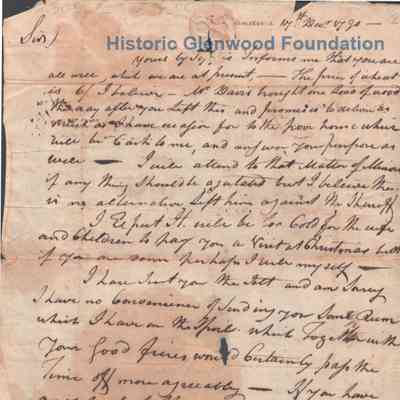 17th Novr 1790 —
Sir)
Historic Glenwood Foundation
Yours by informs me that you are
all well, which we are at present, — the price of wheat
is 6/ I believe — Mr Davis brought one Load of wood
the day after you Left this, and promises to deliver as
much as I have occasion for to the poor house which
will be Cash to me, and answer your purpose as
well — I will attend to that Matter of
if any thing should be agitated but I believe there
is no alternative Left him against the Sheriff
I Expect it will be too Cold for the wife
and Children to pay you a Visit at Christmas but
if you are perhaps I will myself —
I have Sent you the Salt and am Sorry
I have no Convenience of Sending you Some Rum
which I have on the Spot which Together with
Your Good fires would Certainly pass the
Time off more agreeably — If you have